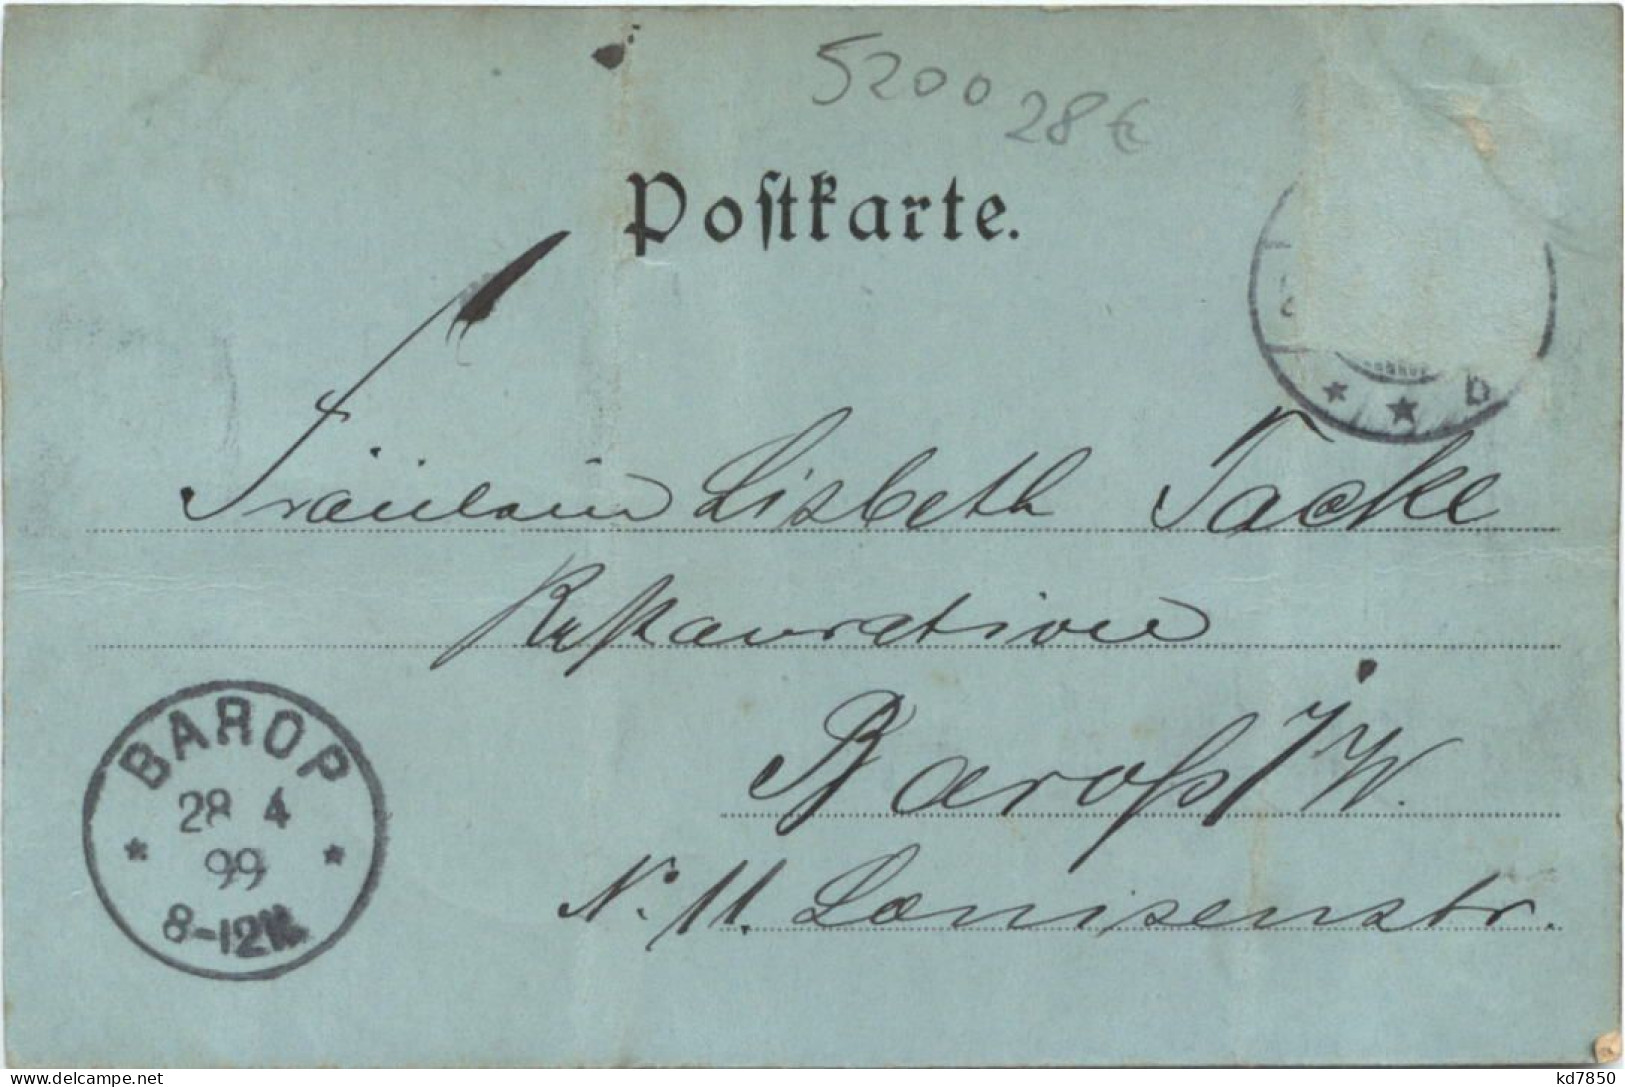 5200
28 €
Postkarte.
Fräulein Lisbeth Tacke
Restauration
Barop i/W.
N. 11. Louisenstr.
BAROP
28 4
99
8-12N.
b
www.delcampe.net
kd7850